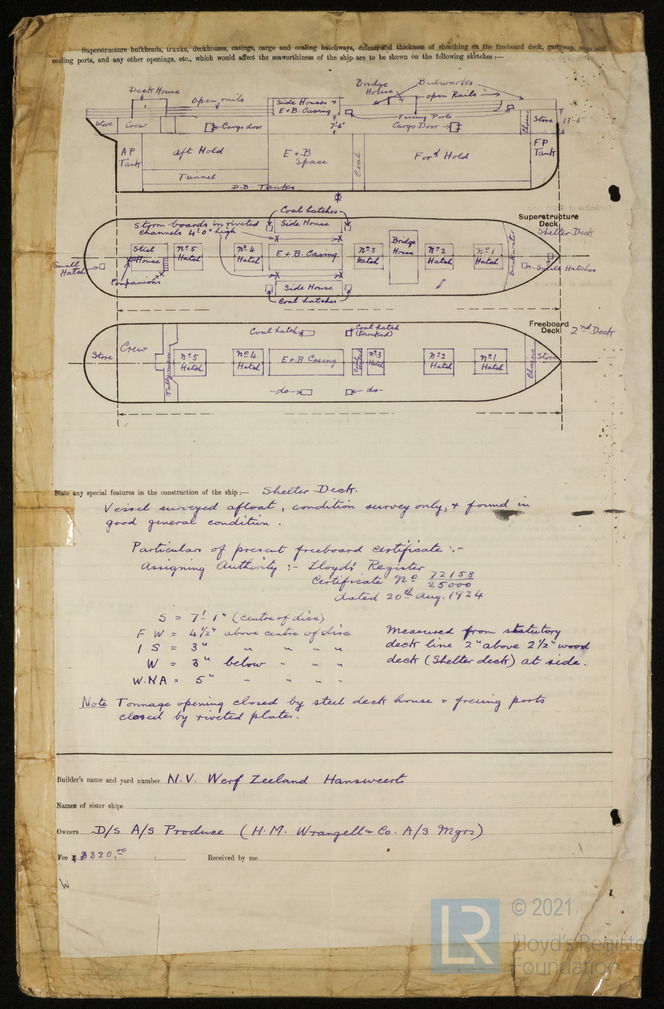 Superstructure bulkheads, trunks, deckhouses, casings, cargo and coaling hatchways, extent and thickness of sheathing on the freeboard deck, gangway, cargo and
coaling ports, and any other openings, etc., which would affect the seaworthiness of the ship are to be shewn on the following sketches :—
Deck House
open rails
Side Houses
E + B. Casing
Bridge
House
Bulwarks
open Rails
Freeing Ports
Store
Crew
Cargo door
7'-6"
Cargo Door
Chains
Store
13'-6"
AP
Tank
Aft Hold
E + B
Space
Coal
For'd Hold
FP
Tank
Tunnel
D.B. Tanks
Coal hatches
Storm boards in riveted
channels 4'0" high
Side House
Superstructure
Deck
Shelter Deck
Small
Hatch
Steel
House
No 5
Hatch
No 4
Hatch
E + B. Casing
No 3
Hatch
Bridge
House
No 2
Hatch
No 1
Hatch
Breakwater
Small Hatches
Companions
Side House
Coal hatches
Freeboard
Deck
2nd Deck
Coal hatch
Coal hatch
(trunked)
Store
Crew
No 5
Hatch
No 4
Hatch
E + B Casing
No 3
Hatch
No 2
Hatch
No 1
Hatch
Chains
Store
— do —
— do —
State any special features in the construction of the ship :— Shelter Deck.
Vessel surveyed afloat, condition survey only, + found in
good general condition.
Particulars of present freeboard certificate :-
Assigning Authority :- Lloyd's Register
Certificate No 72158
25000
dated 20th Aug. 1924
S = 7'- 1" (centre of disc)
F W = 4½" above centre of disc
I S = 3" " " " "
W = 3" below " " "
W.NA = 5" " " " "
Measured from statutory
deck line 2" above 2½" wood
deck (Shelter deck) at side.
Note Tonnage opening closed by steel deck house + freeing ports
closed by riveted plates.
Builder's name and yard number N.V. Werf Zeeland Hansweert
Names of sister ships
Owners D/S A/S Produce (H.M. Wrangell & Co. A/S Mgrs)
Fee $320.00 : : Received by me
W
LR
© 2021
Lloyd's Register
Foundation